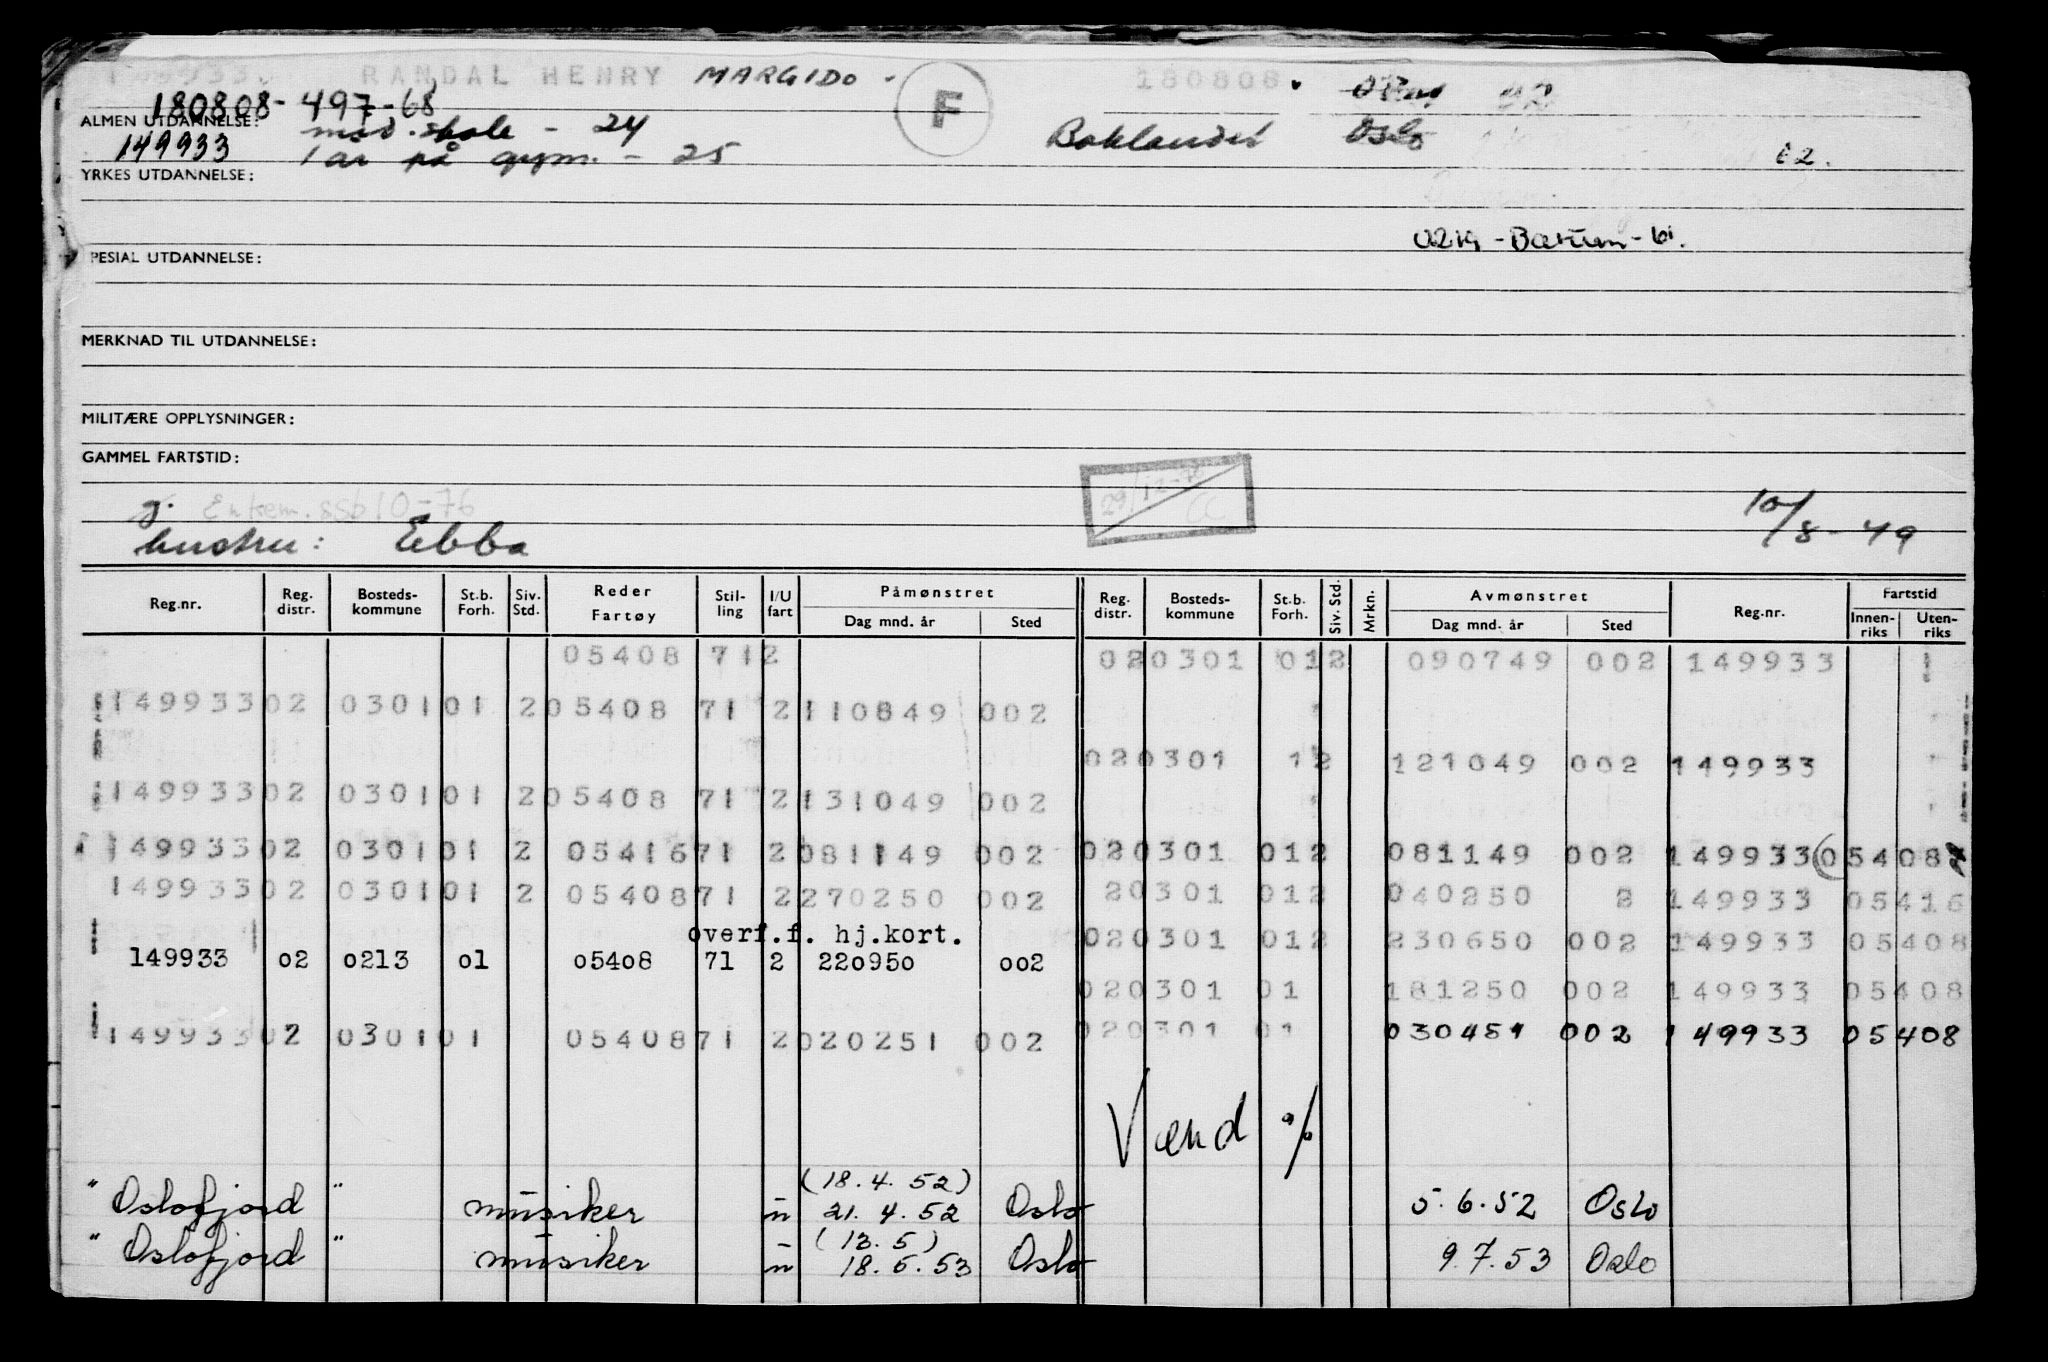 149933 RANDAL HENRY MARGIDO - F 180808
180808-497-68
ALMEN UTDANNELSE: mid.skole - 24 Oslo
149933 1 år på gym. - 25 62.
YRKES UTDANNELSE:
- Bærum - 61.
PESIAL UTDANNELSE:
MERKNAD TIL UTDANNELSE:
MILITÆRE OPPLYSNINGER:
GAMMEL FARTSTID:
g. 10/8-49
hustru: Ebba
Reg.nr. Reg. distr. Bosteds- kommune St.b. Forh. Siv. Std. Reder Fartøy Stil- ling I/U fart Påmønstret Dag mnd. år Sted Reg. distr. Bosteds- kommune St.b. Forh. Siv. Std. Mrkn. Avmønstret Dag mnd. år Sted Reg.nr. Fartstid Innen- riks Uten- riks
05408 71 2 02 0301 01 2 090749 002 149933
149933 02 0301 01 2 05408 71 2 110849 002
02 0301 1 2 121049 002 149933
149933 02 0301 01 2 05408 71 2 131049 002
149933 02 0301 01 2 05416 71 2 081149 002 02 0301 01 2 081149 002 149933 05408
149933 02 0301 01 2 05408 71 2 270250 002 2 0301 01 2 040250 2 149933 05416
overf.f. hj.kort. 02 0301 01 2 230650 002 149933 05408
149933 02 0213 01 05408 71 2 220950 002
02 0301 01 181250 002 149933 05408
149933 02 0301 01 05408 71 2 020251 002 02 0301 01 030451 002 149933 05408
Vend %
(18.4.52)
" Oslofjord " musiker u 21.4.52 Oslo 5.6.52 Oslo
(13.5)
" Oslofjord " musiker u 18.5.53 Oslo 9.7.53 Oslo